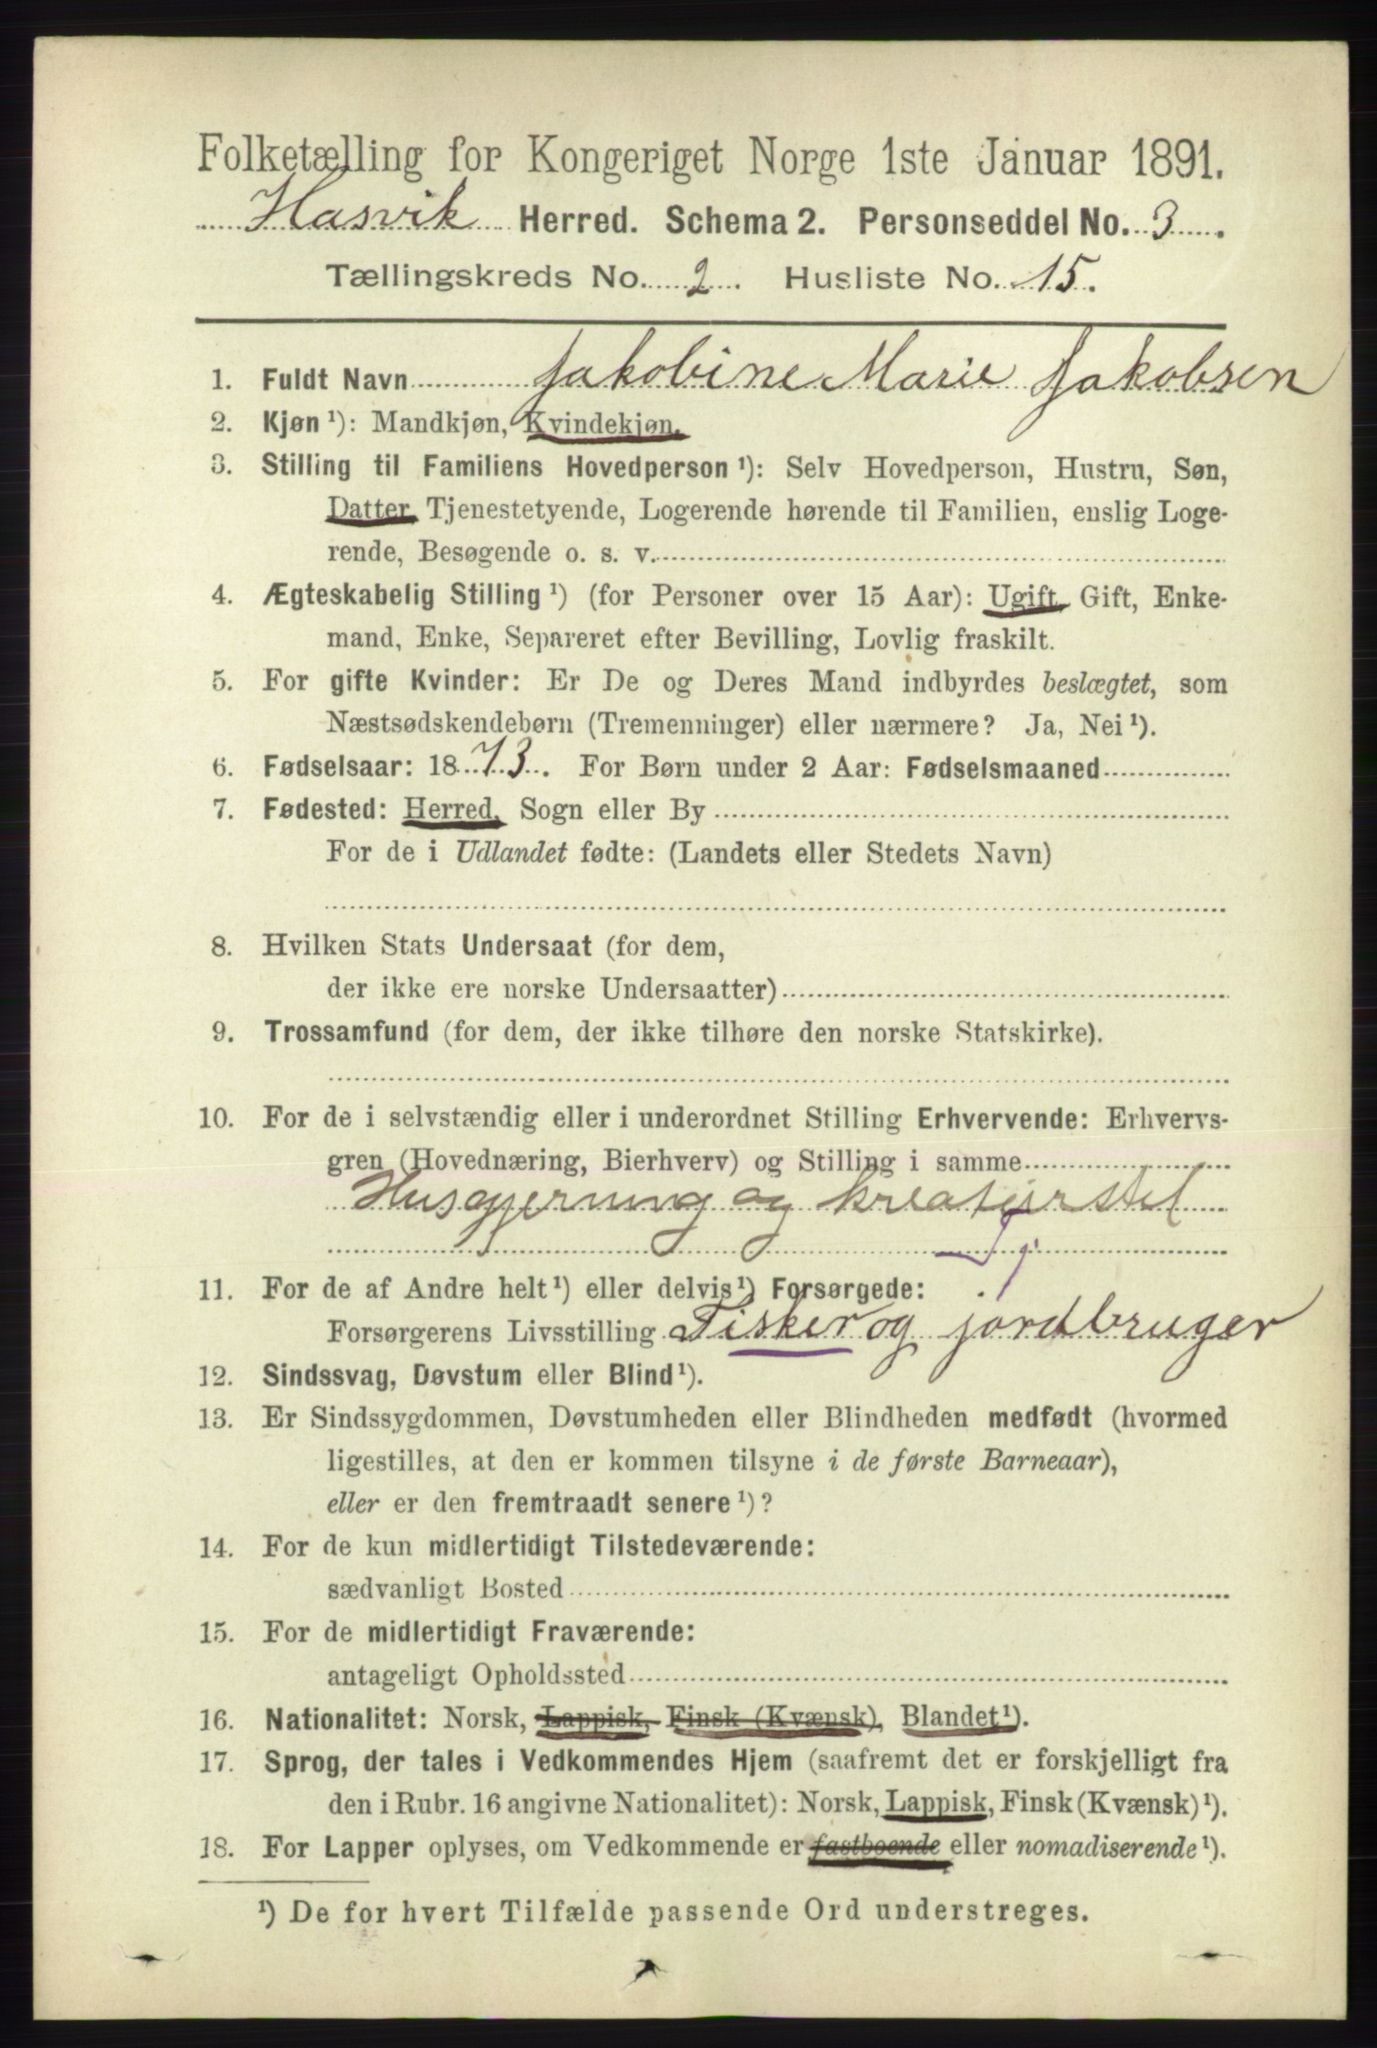 Folketælling for Kongeriget Norge 1ste Januar 1891.
Hasvik Herred. Schema 2. Personseddel No. 3.
Tællingskreds No. 2. Husliste No. 15.
1. Fuldt Navn Jakobine Marie Jakobsen
2. Kjøn¹): Mandkjøn, Kvindekjøn.
3. Stilling til Familiens Hovedperson¹): Selv Hovedperson, Hustru, Søn,
Datter, Tjenestetyende, Logerende hørende til Familien, enslig Loge-
rende, Besøgende o. s. v.
4. Ægteskabelig Stilling¹) (for Personer over 15 Aar): Ugift, Gift, Enke-
mand, Enke, Separeret efter Bevilling, Lovlig fraskilt.
5. For gifte Kvinder: Er De og Deres Mand indbyrdes beslægtet, som
Næstsødskendebørn (Tremenninger) eller nærmere? Ja, Nei¹).
6. Fødselsaar: 1873. For Børn under 2 Aar: Fødselsmaaned
7. Fødested: Herred, Sogn eller By
For de i Udlandet fødte: (Landets eller Stedets Navn)
8. Hvilken Stats Undersaat (for dem,
der ikke ere norske Undersaatter)
9. Trossamfund (for dem, der ikke tilhøre den norske Statskirke).
10. For de i selvstændig eller i underordnet Stilling Erhvervende: Erhvervs-
gren (Hovednæring, Bierhverv) og Stilling i samme
Husgjerning og kreaturstel
11. For de af Andre helt¹) eller delvis¹) Forsørgede:
Forsørgerens Livsstilling Fisker og jordbruger
12. Sindssvag, Døvstum eller Blind¹).
13. Er Sindssygdommen, Døvstumheden eller Blindheden medfødt (hvormed
ligestilles, at den er kommen tilsyne i de første Barneaar),
eller er den fremtraadt senere¹)?
14. For de kun midlertidigt Tilstedeværende:
sædvanligt Bosted
15. For de midlertidigt Fraværende:
antageligt Opholdssted
16. Nationalitet: Norsk, Lappisk, Finsk (Kvænsk), Blandet¹).
17. Sprog, der tales i Vedkommendes Hjem (saafremt det er forskjelligt fra
den i Rubr. 16 angivne Nationalitet): Norsk, Lappisk, Finsk (Kvænsk)¹).
18. For Lapper oplyses, om Vedkommende er fastboende eller nomadiserende¹).
¹) De for hvert Tilfælde passende Ord understreges.